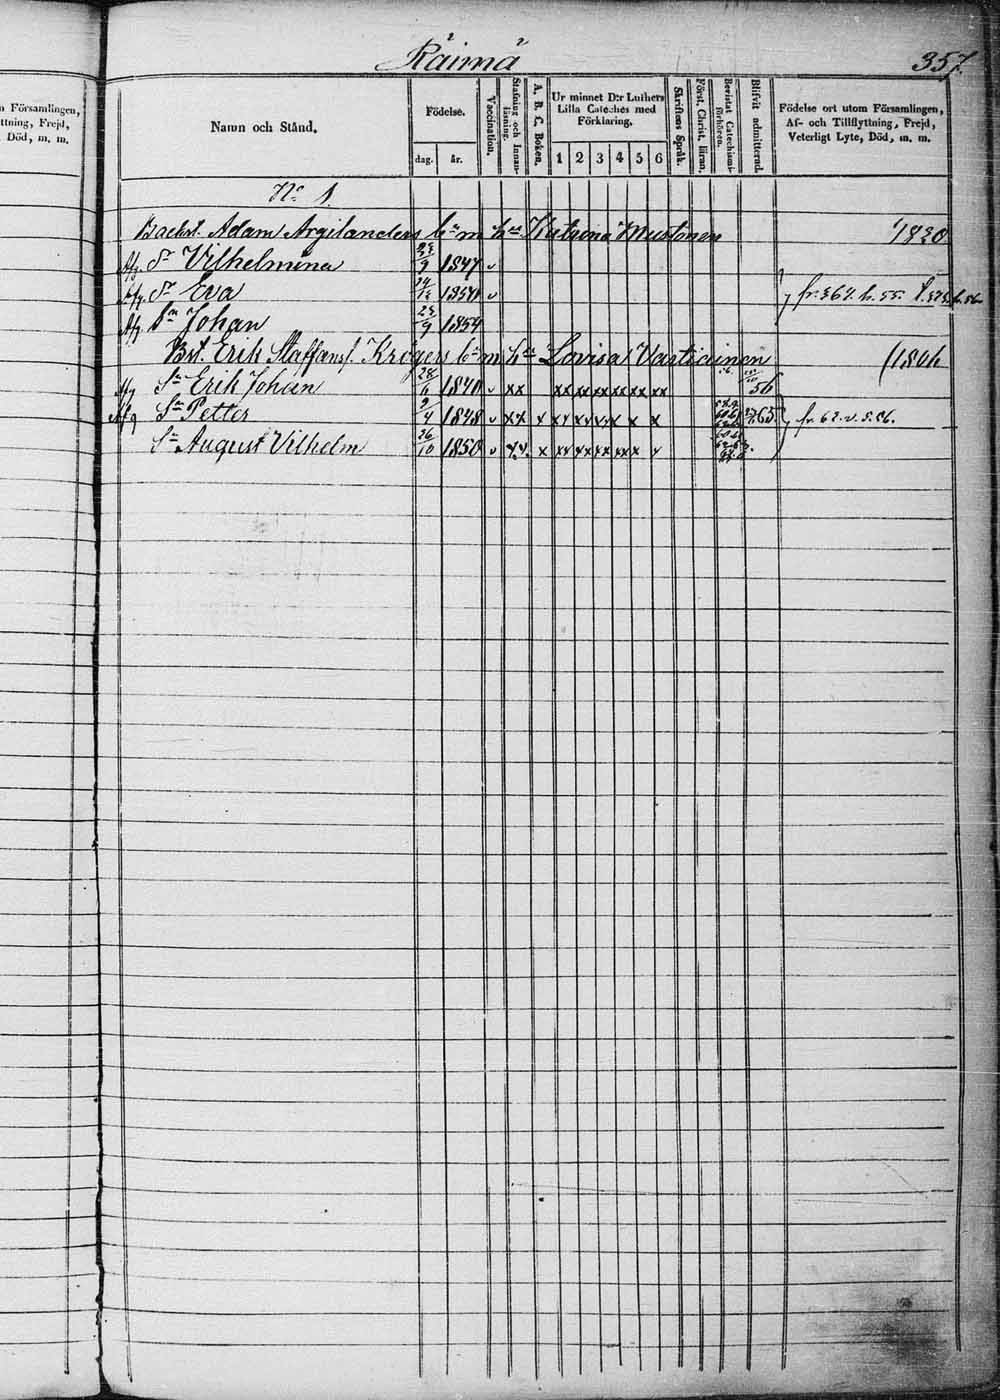 Räimä
357.
n Församlingen,
ttning, Frejd,
Död, m. m.
Namn och Stånd.
Födelse.
dag. år.
Vaccination.
Stafning och Innan-
läsning.
A. B. C. Boken.
Ur minnet D:r Luthers
Lilla Cateches med
Förklaring.
1 2 3 4 5 6
Skriftens Språk.
Först. Christ. läran.
Bevistat Catechismi-
förhören.
Blifvit admitterad.
Födelse ort utom Församlingen,
Af- och Tillflyttning, Frejd,
Veterligt Lyte, Död, m. m.
No 1.
Backst. Adam Argilanders bn m hu Katrina Mustonen 1820
Afg. Dr Vilhelmina 9 1847 v
Afg. Dr Eva 24/12 1850 v } fr. 367. h. 55.
Afg Sn Johan 23/9 1854
Bst. Erik Staffans. Krögers bn m hu Lovisa Vartiainen (1804
Afg Sn Erik Johan 28/6 1840 v xx xx xx xx xx xx xx 56
Afg Sn Petter 9/4 1848 v xx x xx xx xx x x x 63. } fr 62. v. s. 56.
Sn August Vilhelm 26/10 1850 v xx. x xx xx xx xx x x